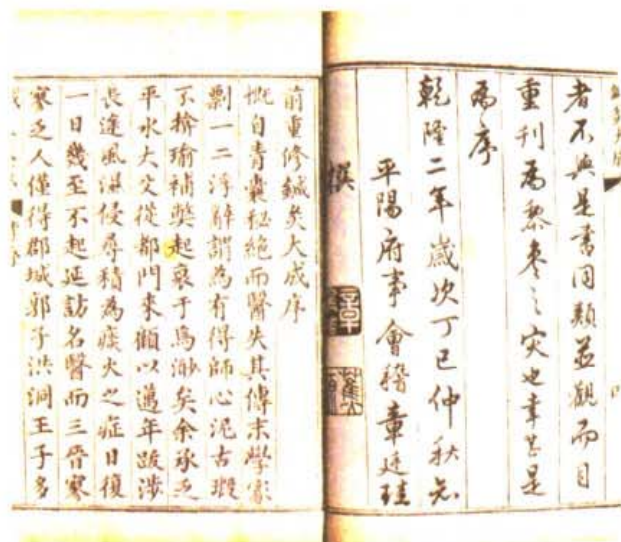 者不與是書同類並觀而目
重刊為棃棗之災也幸甚是
為序
乾隆二年歲次丁巳仲秋知
平陽府事會稽章廷珪
撰
前重修鍼灸大成序
慨自青囊秘絶而醫失其傳末學家
剽一二浮辭謂為有得師心泥古瑕
不揜瑜補弊起衰于焉渺矣余承乏
平水大父從都門來顧以邁年跋涉
長途風濕侵尋積為痰火之症日復
一日幾至不起延訪名醫而三晉寒
寒乏人僅得郡城郭子洪洞王子多